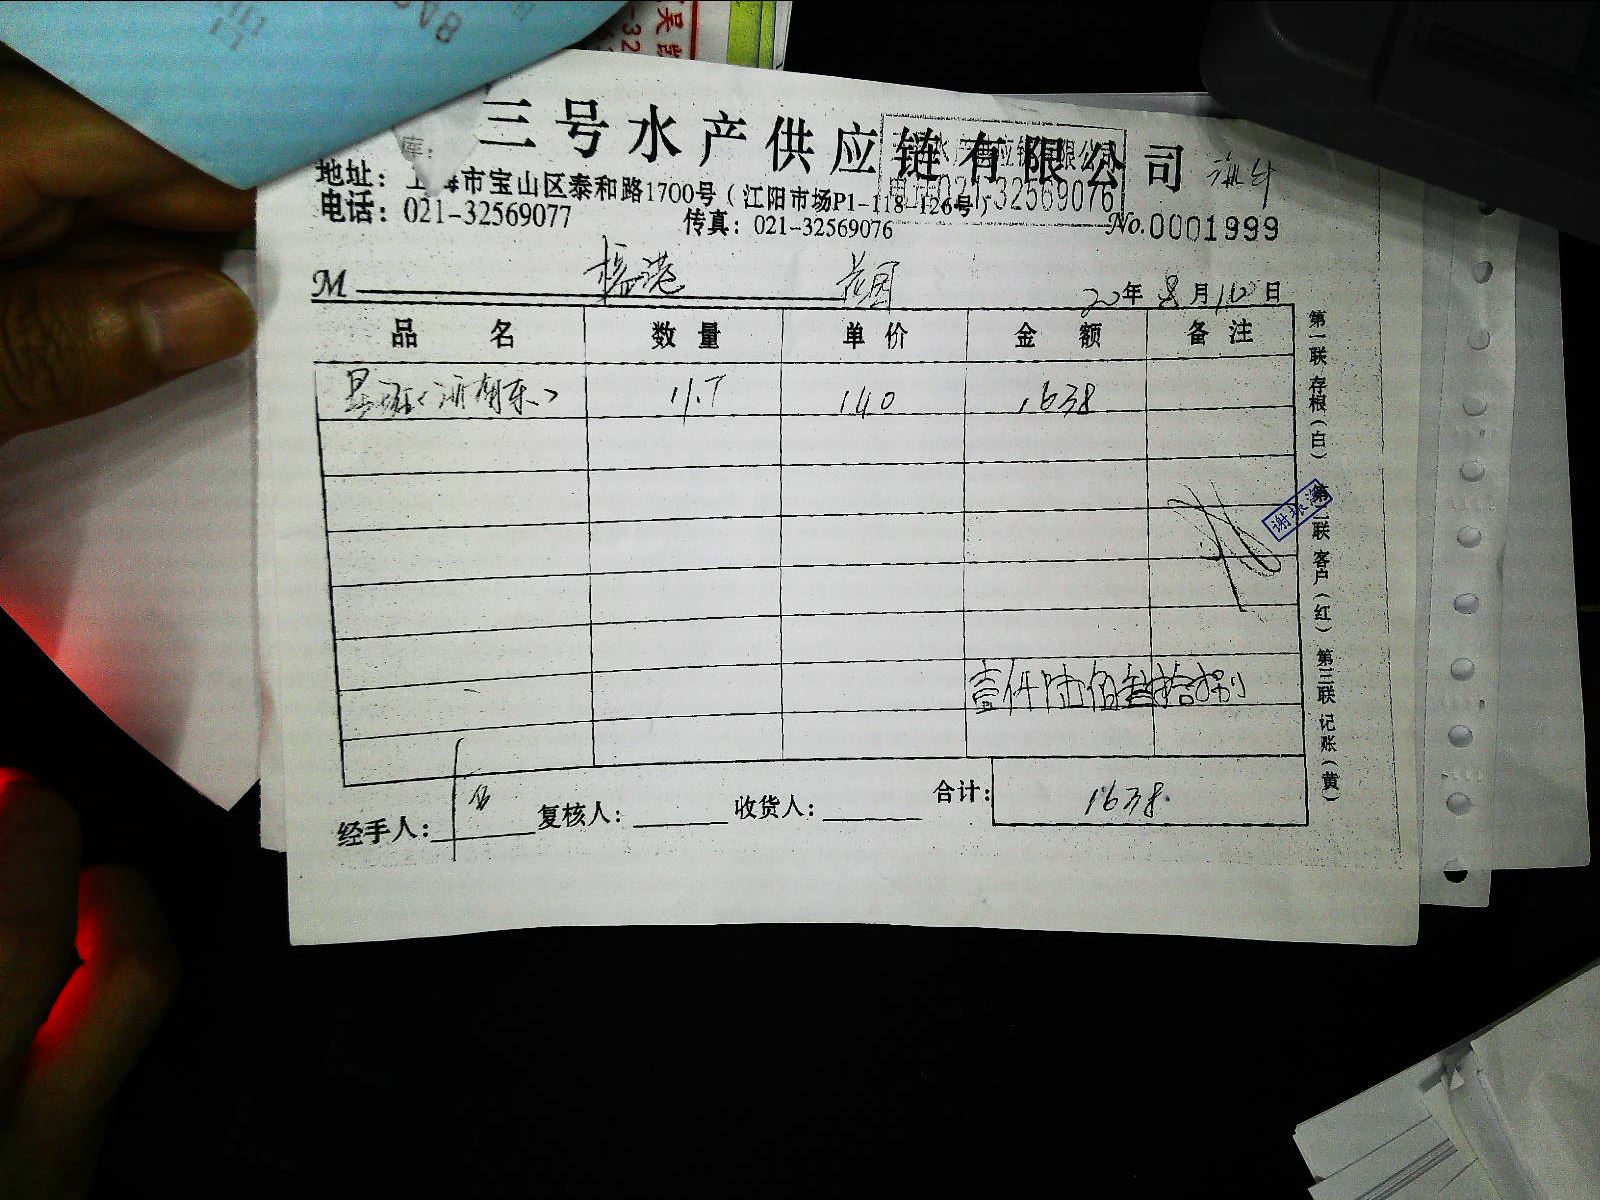 三号水产供应链有限公司
地址：上海市宝山区泰和路1700号（江阳市场P1-118-126号）
电话：021-32569077 传真：021-32569076
021-32569076
No.0001999
M 花园
20年8月10日
品名 数量 单价 金额 备注
星斑 11.7 140 1638
谢振
壹仟陆佰叁拾捌
合计：1638.
经手人： 复核人： 收货人：
第一联 存根（白） 第二联 客户（红） 第三联 记账（黄）